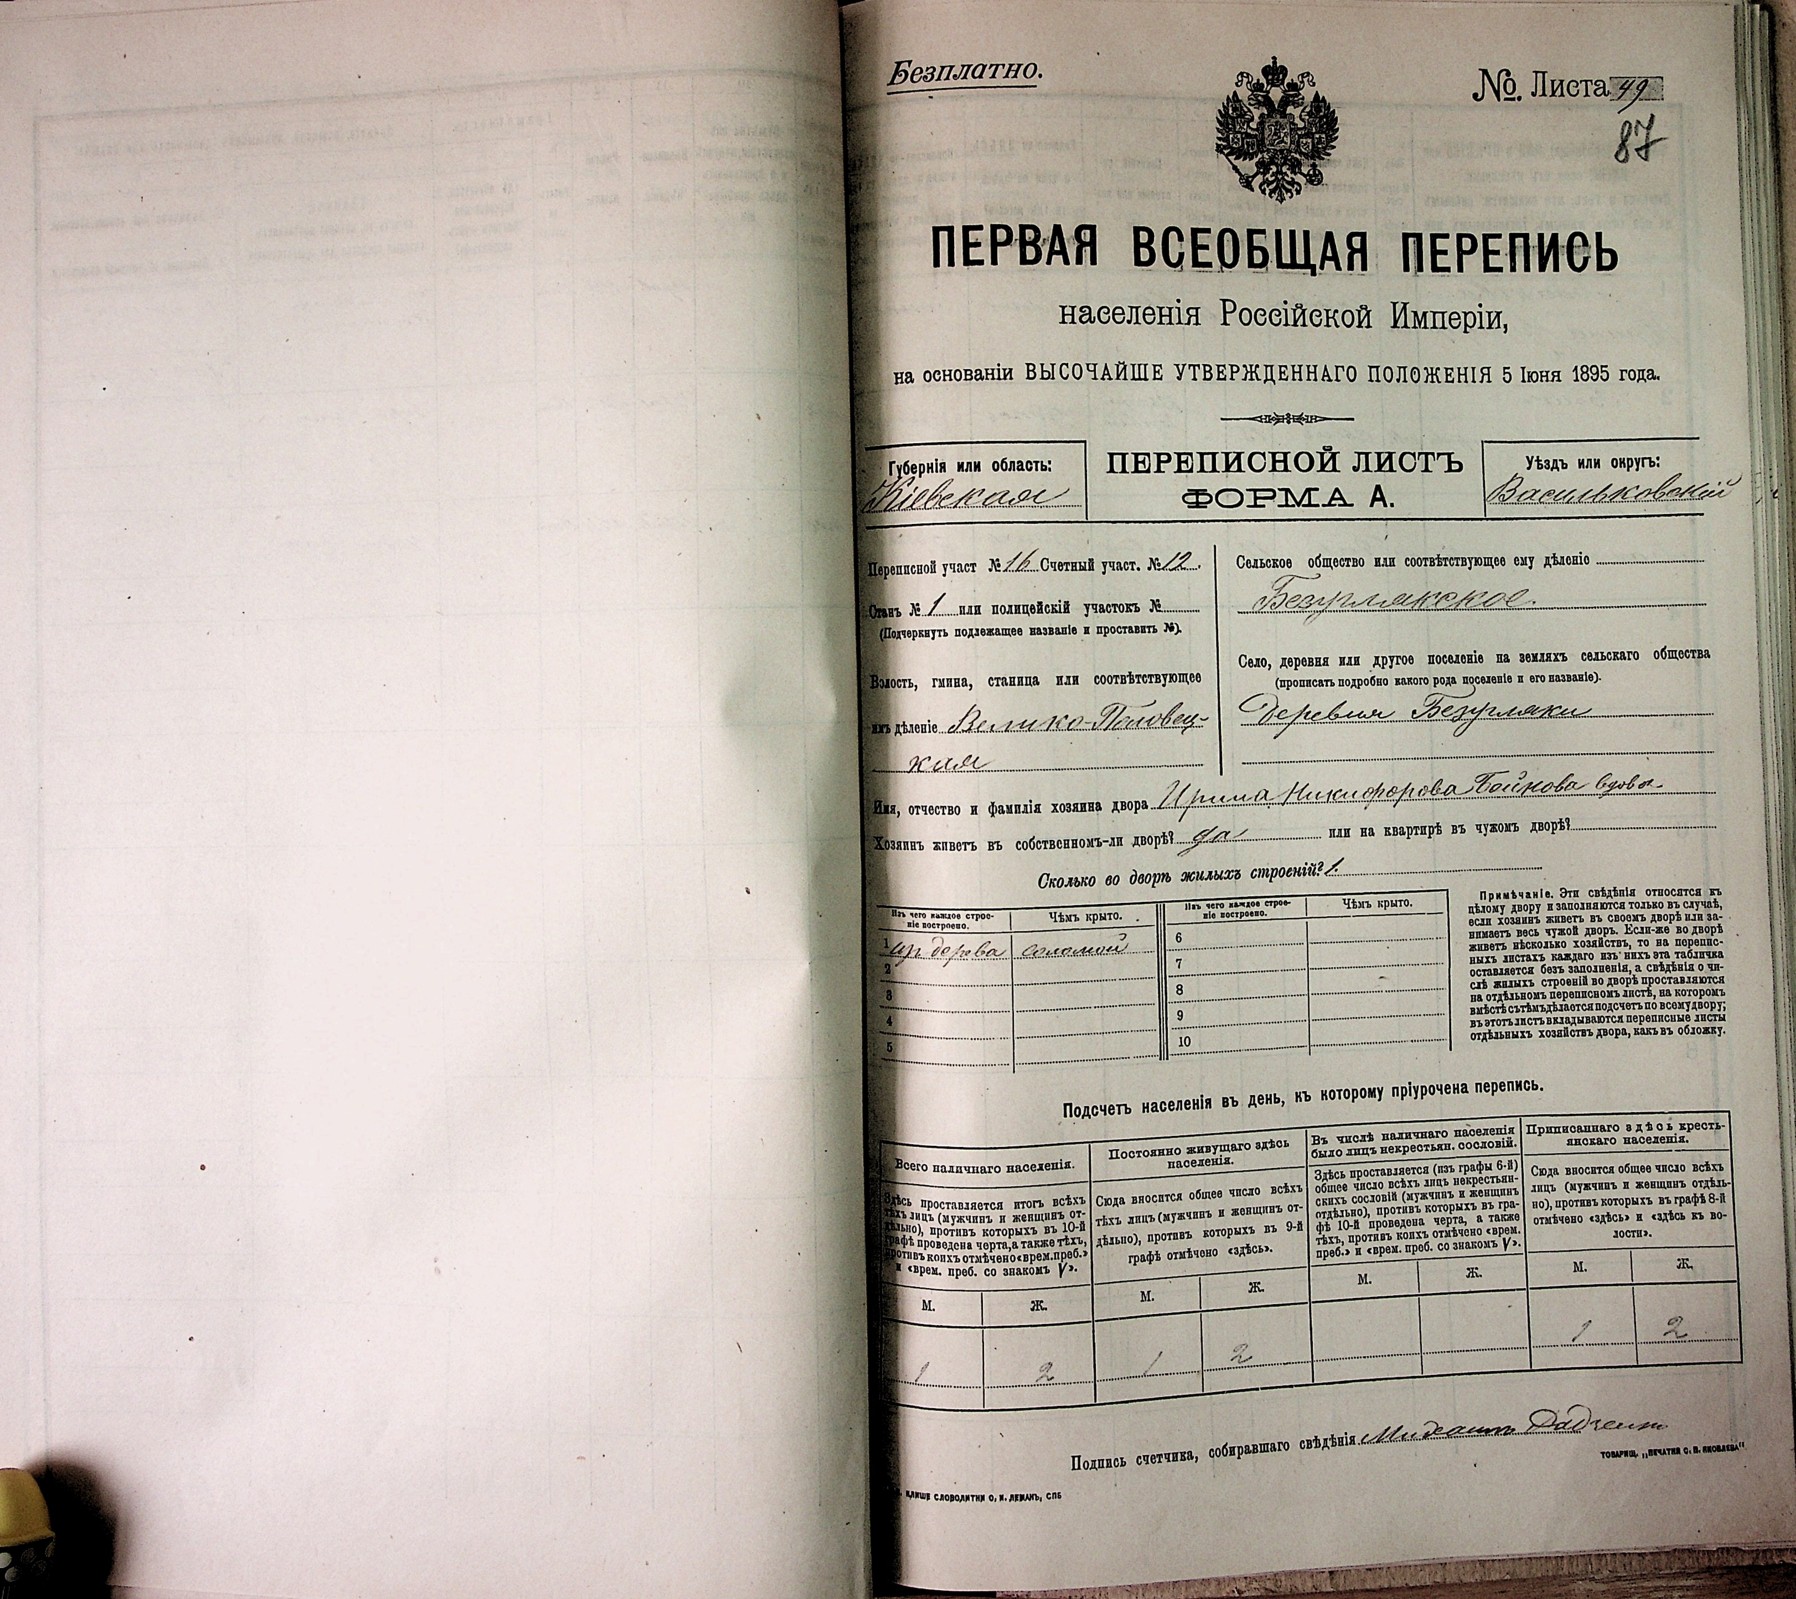 Безплатно.
№ Листа 49
87
ПЕРВАЯ ВСЕОБЩАЯ ПЕРЕПИСЬ
населенія Россійской Имперіи,
на основаніи ВЫСОЧАЙШЕ УТВЕРЖДЕННАГО ПОЛОЖЕНІЯ 5 Іюня 1895 года.
Губернія или область:
Кіевская
ПЕРЕПИСНОЙ ЛИСТЪ
ФОРМА А.
Уѣздъ или округъ:
Васильковскій
Переписной участ №16 Счетный участ. №12.
Станъ №1 или полицейскій участокъ №
(Подчеркнуть подлежащее названіе и проставить №).
Волость, гмина, станица или соотвѣтствующее
имъ дѣленіе Велико-Половец-
кая
Сельское общество или соотвѣтствующее ему дѣленіе
Безуглякское.
Село, деревня или другое поселеніе на земляхъ сельскаго общества
(прописать подробно какого рода поселеніе и его названіе).
Деревня Безугляки
Имя, отчество и фамилія хозяина двора Ирина Никифорова Бойкова вдова.
Хозяинъ живетъ въ собственномъ-ли дворѣ? да или на квартирѣ въ чужомъ дворѣ?
Сколько во дворѣ жилыхъ строеній? 1.
Изъ чего каждое строе-
ніе построено.
Чѣмъ крыто.
1 изъ дерева соломой
2
3
4
5
Изъ чего каждое строе-
ніе построено.
Чѣмъ крыто.
6
7
8
9
10
Примѣчаніе. Эти свѣдѣнія относятся къ
цѣлому двору и заполняются только въ случаѣ,
если хозяинъ живетъ въ своемъ дворѣ или за-
нимаетъ весь чужой дворъ. Если-же во дворѣ
живетъ нѣсколько хозяйствъ, то на перепис-
ныхъ листахъ каждаго изъ нихъ эта табличка
оставляется безъ заполненія, а свѣдѣнія о чи-
слѣ жилыхъ строеній во дворѣ проставляются
на отдѣльномъ переписномъ листѣ, на которомъ
вмѣстѣ съ тѣмъ дѣлается подсчетъ по всему двору;
въ этотъ листъ вкладываются переписные листы
отдѣльныхъ хозяйствъ двора, какъ въ обложку.
Подсчетъ населенія въ день, къ которому пріурочена перепись.
Всего наличнаго населенія.
Здѣсь проставляется итогъ всѣхъ
тѣхъ лицъ (мужчинъ и женщинъ от-
дѣльно), противъ которыхъ въ 10-й
графѣ проведена черта, а также тѣхъ,
противъ коихъ отмѣчено «врем. преб.»
и «врем. преб. со знакомъ V».
М. Ж.
1 2
Постоянно живущаго здѣсь
населенія.
Сюда вносится общее число всѣхъ
тѣхъ лицъ (мужчинъ и женщинъ от-
дѣльно), противъ которыхъ въ 9-й
графѣ отмѣчено «здѣсь».
М. Ж.
1 2
Въ числѣ наличнаго населенія
было лицъ некрестьян. сословій.
Здѣсь проставляется (изъ графы 6-й)
общее число всѣхъ лицъ некрестьян-
скихъ сословій (мужчинъ и женщинъ
отдѣльно), противъ которыхъ въ гра-
фѣ 10-й проведена черта, а также
тѣхъ, противъ коихъ отмѣчено «врем.
преб.» и «врем. преб. со знакомъ V».
М. Ж.
Приписаннаго здѣсь кресть-
янскаго населенія.
Сюда вносится общее число всѣхъ
лицъ (мужчинъ и женщинъ отдѣль-
но), противъ которыхъ въ графѣ 8-й
отмѣчено «здѣсь» и «здѣсь къ во-
лости».
М. Ж.
1 2
Подпись счетчика, собиравшаго свѣдѣнія
КЛИШЕ СЛОВОЛИТНИ О. И. ЛЕМАНЪ, СПБ
ТОВАРИЩ. „ПЕЧАТНЯ С. П. ЯКОВЛЕВА"